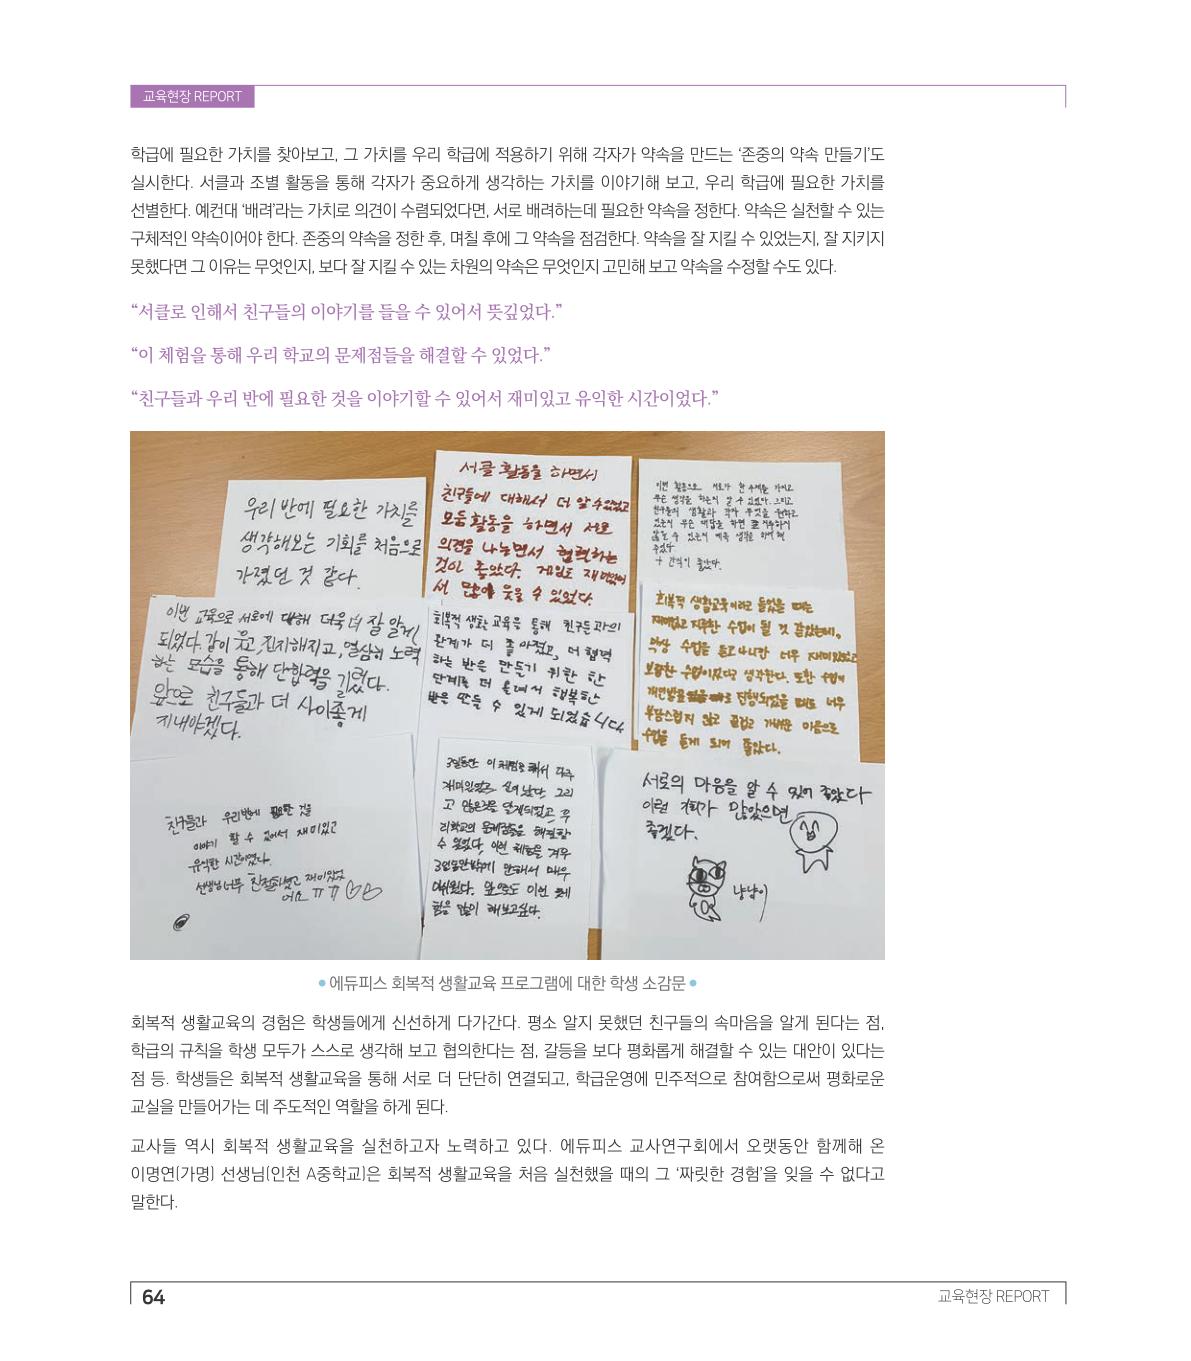 교육현장 REPORT
학급에 필요한 가치를 찾아보고, 그 가치를 우리 학급에 적용하기 위해 각자가 약속을 만드는 ‘존중의 약속 만들기’도
실시한다. 서클과 조별 활동을 통해 각자가 중요하게 생각하는 가치를 이야기해 보고, 우리 학급에 필요한 가치를
선별한다. 예컨대 ‘배려’라는 가치로 의견이 수렴되었다면, 서로 배려하는데 필요한 약속을 정한다. 약속은 실천할 수 있는
구체적인 약속이어야 한다. 존중의 약속을 정한 후, 며칠 후에 그 약속을 점검한다. 약속을 잘 지킬 수 있었는지, 잘 지키지
못했다면 그 이유는 무엇인지, 보다 잘 지킬 수 있는 차원의 약속은 무엇인지 고민해 보고 약속을 수정할 수도 있다.
“서클로 인해서 친구들의 이야기를 들을 수 있어서 뜻깊었다.”
“이 체험을 통해 우리 학교의 문제점들을 해결할 수 있었다.”
“친구들과 우리 반에 필요한 것을 이야기할 수 있어서 재미있고 유익한 시간이었다.”
우리 반에 필요한 가치를
생각해보는 기회를 처음으로
가졌던 것 같다.
서클 활동을 하면서
친구들에 대해서 더 알 수 있었고
모둠활동을 하면서 서로
의견을 나누면서 협력하는
것이 좋았다. 게임도 재미있어
서 많이 웃을 수 있었다.
이번 활동으로 서로가 한 주제를 가지고
무슨 생각을 하는지 알 수 있었다. 그리고
친구들의 생활과 각자 무엇을 원하고
있는지 무슨 대답을 하면
수 있는지 생각을 하게
되었다.
+ 간식이 좋았다.
이번 교육으로 서로에 대해 더욱 더 잘 알게
되었다. 같이 웃고, 진지해지고, 열심히 노력
하는 모습을 통해 단합력을 기렀다.
앞으로 친구들과 더 사이좋게
지내야겠다.
회복적 생활 교육을 통해 친구들과의
관계가 더 좋아졌고, 더 협력
하는 반을 만들기 위한 한
단계를 더 올라서 행복한
반을 만들 수 있게 되었습니다
회복적 생활교육이라고 들었을 때는
재미없고 지루한 수업이 될 것 같았는데,
막상 수업을 듣고 나니깐 너무 재미있었고
보람찬 수업이었다고 생각한다. 또한 수업이
진행되었을 때도 너무
부담스럽지 않고 즐겁고 가벼운 마음으로
수업을 듣게 되어 좋았다.
친구들과 우리반에 필요한 것을
이야기 할 수 있어서 재미있고
유익한 시간이었다.
선생님 너무 친절하시고 재미있었
어요 ㅠㅠ
3일동안 이 체험을 해서 너무
재미있었고 신이 났다. 그리
고 많은것을 알게되었고, 우
리학교의 문제점들을 해결할
수 있었다, 이런 체험을 겨우
3일동안밖에 안해서 매우
아쉬웠다. 앞으로도 이런 체
험을 많이 해보고싶다.
서로의 마음을 알 수 있어 좋았다
이런 기회가 많았으면
좋겠다.
냥냥이
에듀피스 회복적 생활교육 프로그램에 대한 학생 소감문
회복적 생활교육의 경험은 학생들에게 신선하게 다가간다. 평소 알지 못했던 친구들의 속마음을 알게 된다는 점,
학급의 규칙을 학생 모두가 스스로 생각해 보고 협의한다는 점, 갈등을 보다 평화롭게 해결할 수 있는 대안이 있다는
점 등. 학생들은 회복적 생활교육을 통해 서로 더 단단히 연결되고, 학급운영에 민주적으로 참여함으로써 평화로운
교실을 만들어가는 데 주도적인 역할을 하게 된다.
교사들 역시 회복적 생활교육을 실천하고자 노력하고 있다. 에듀피스 교사연구회에서 오랫동안 함께해 온
이명연(가명) 선생님(인천 A중학교)은 회복적 생활교육을 처음 실천했을 때의 그 ‘짜릿한 경험’을 잊을 수 없다고
말한다.
64
교육현장 REPORT